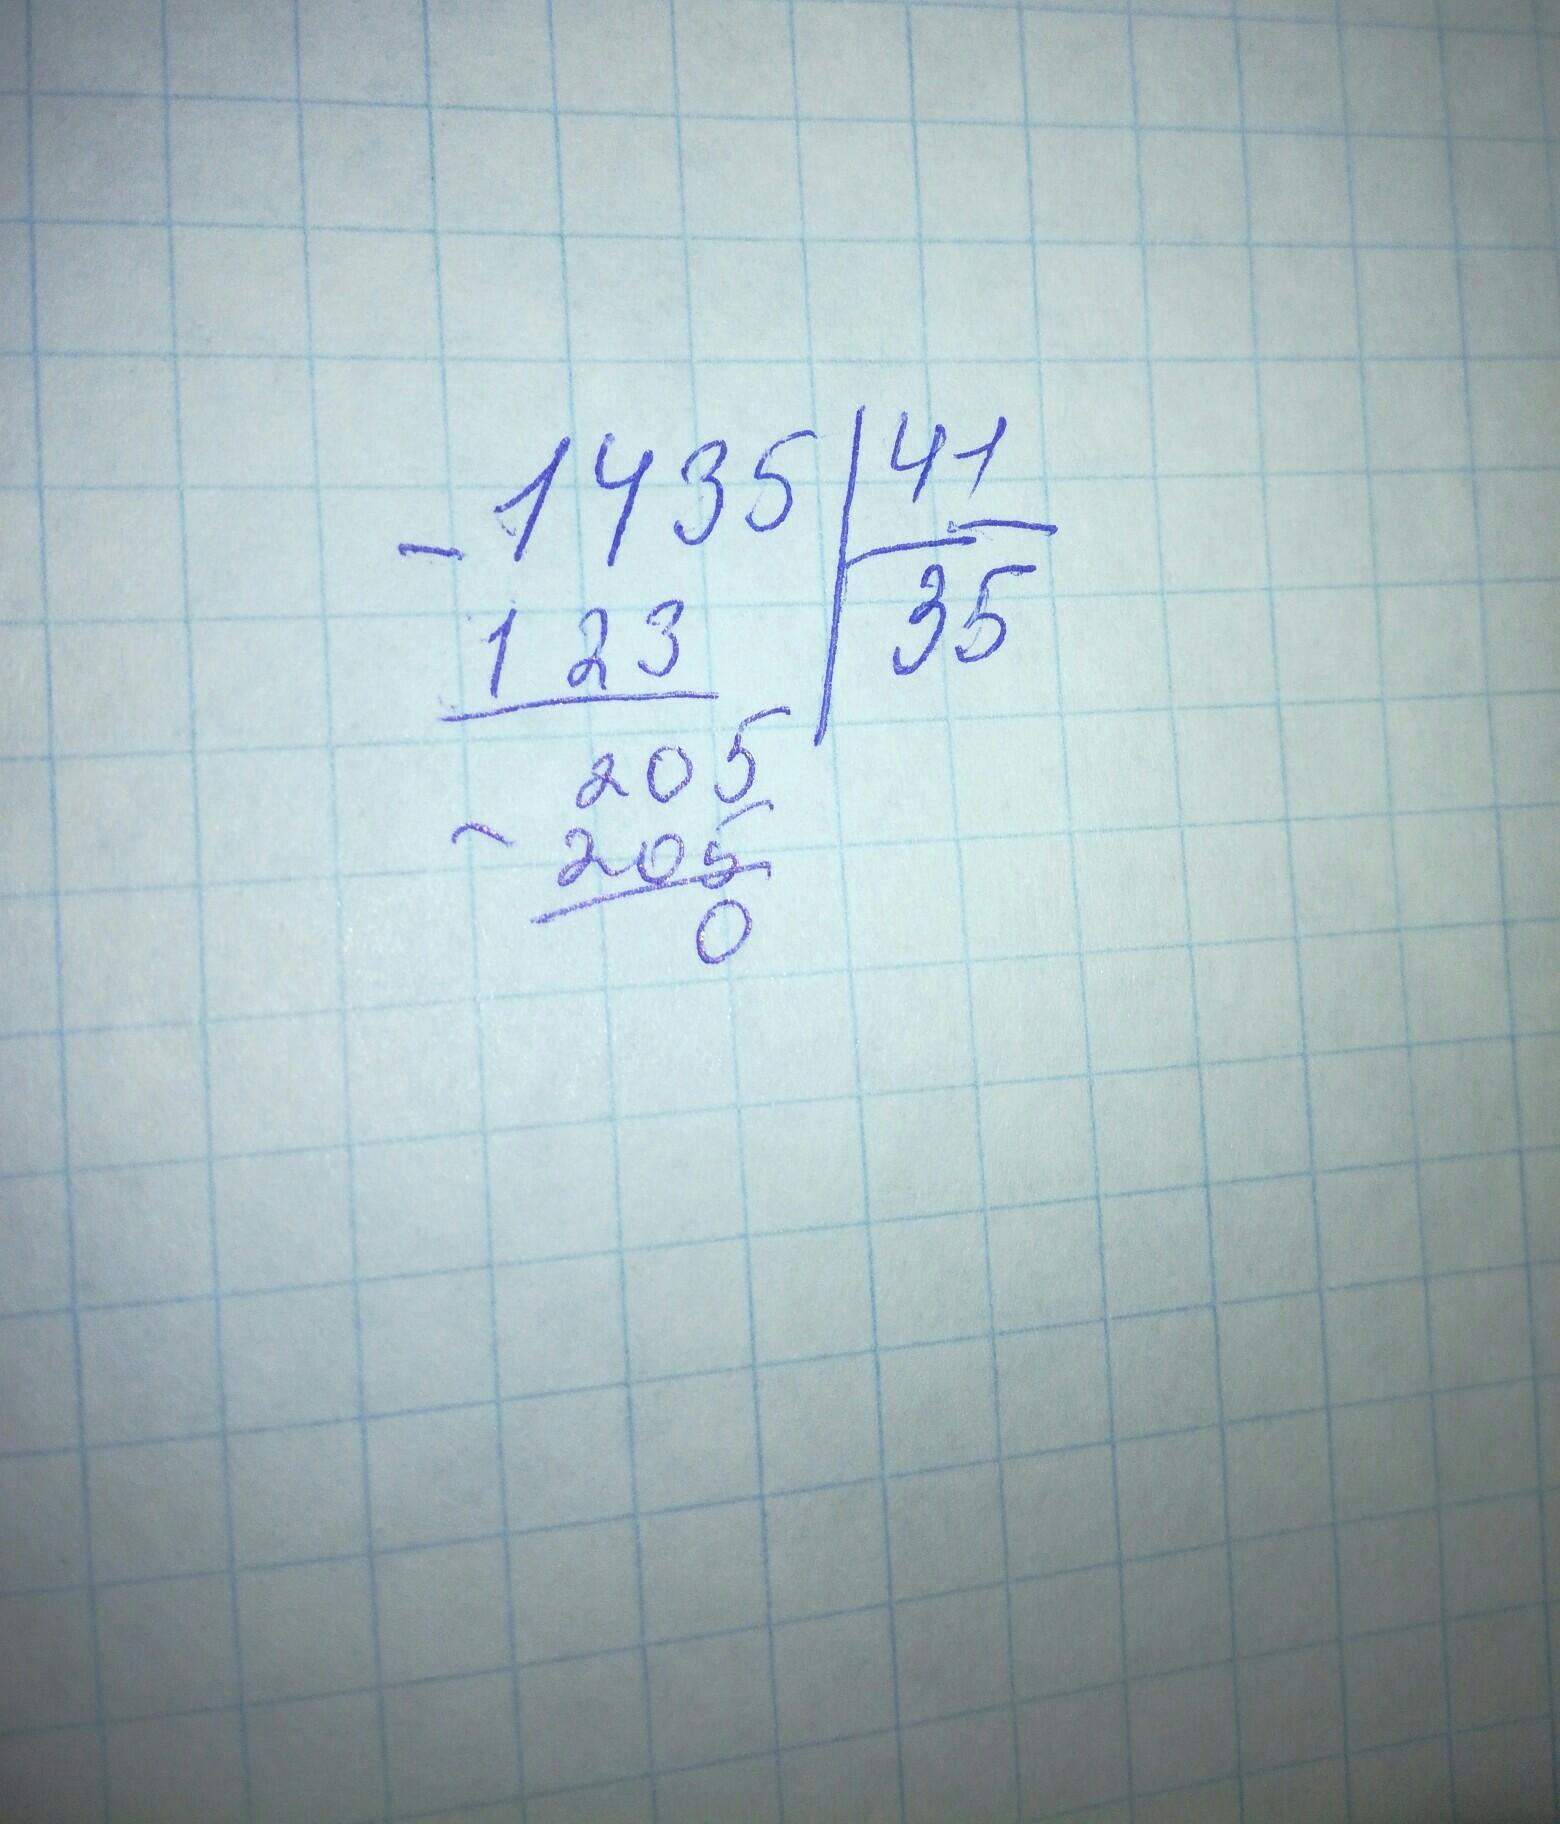 - 1435 | 41
123 | 35
205
- 205
0